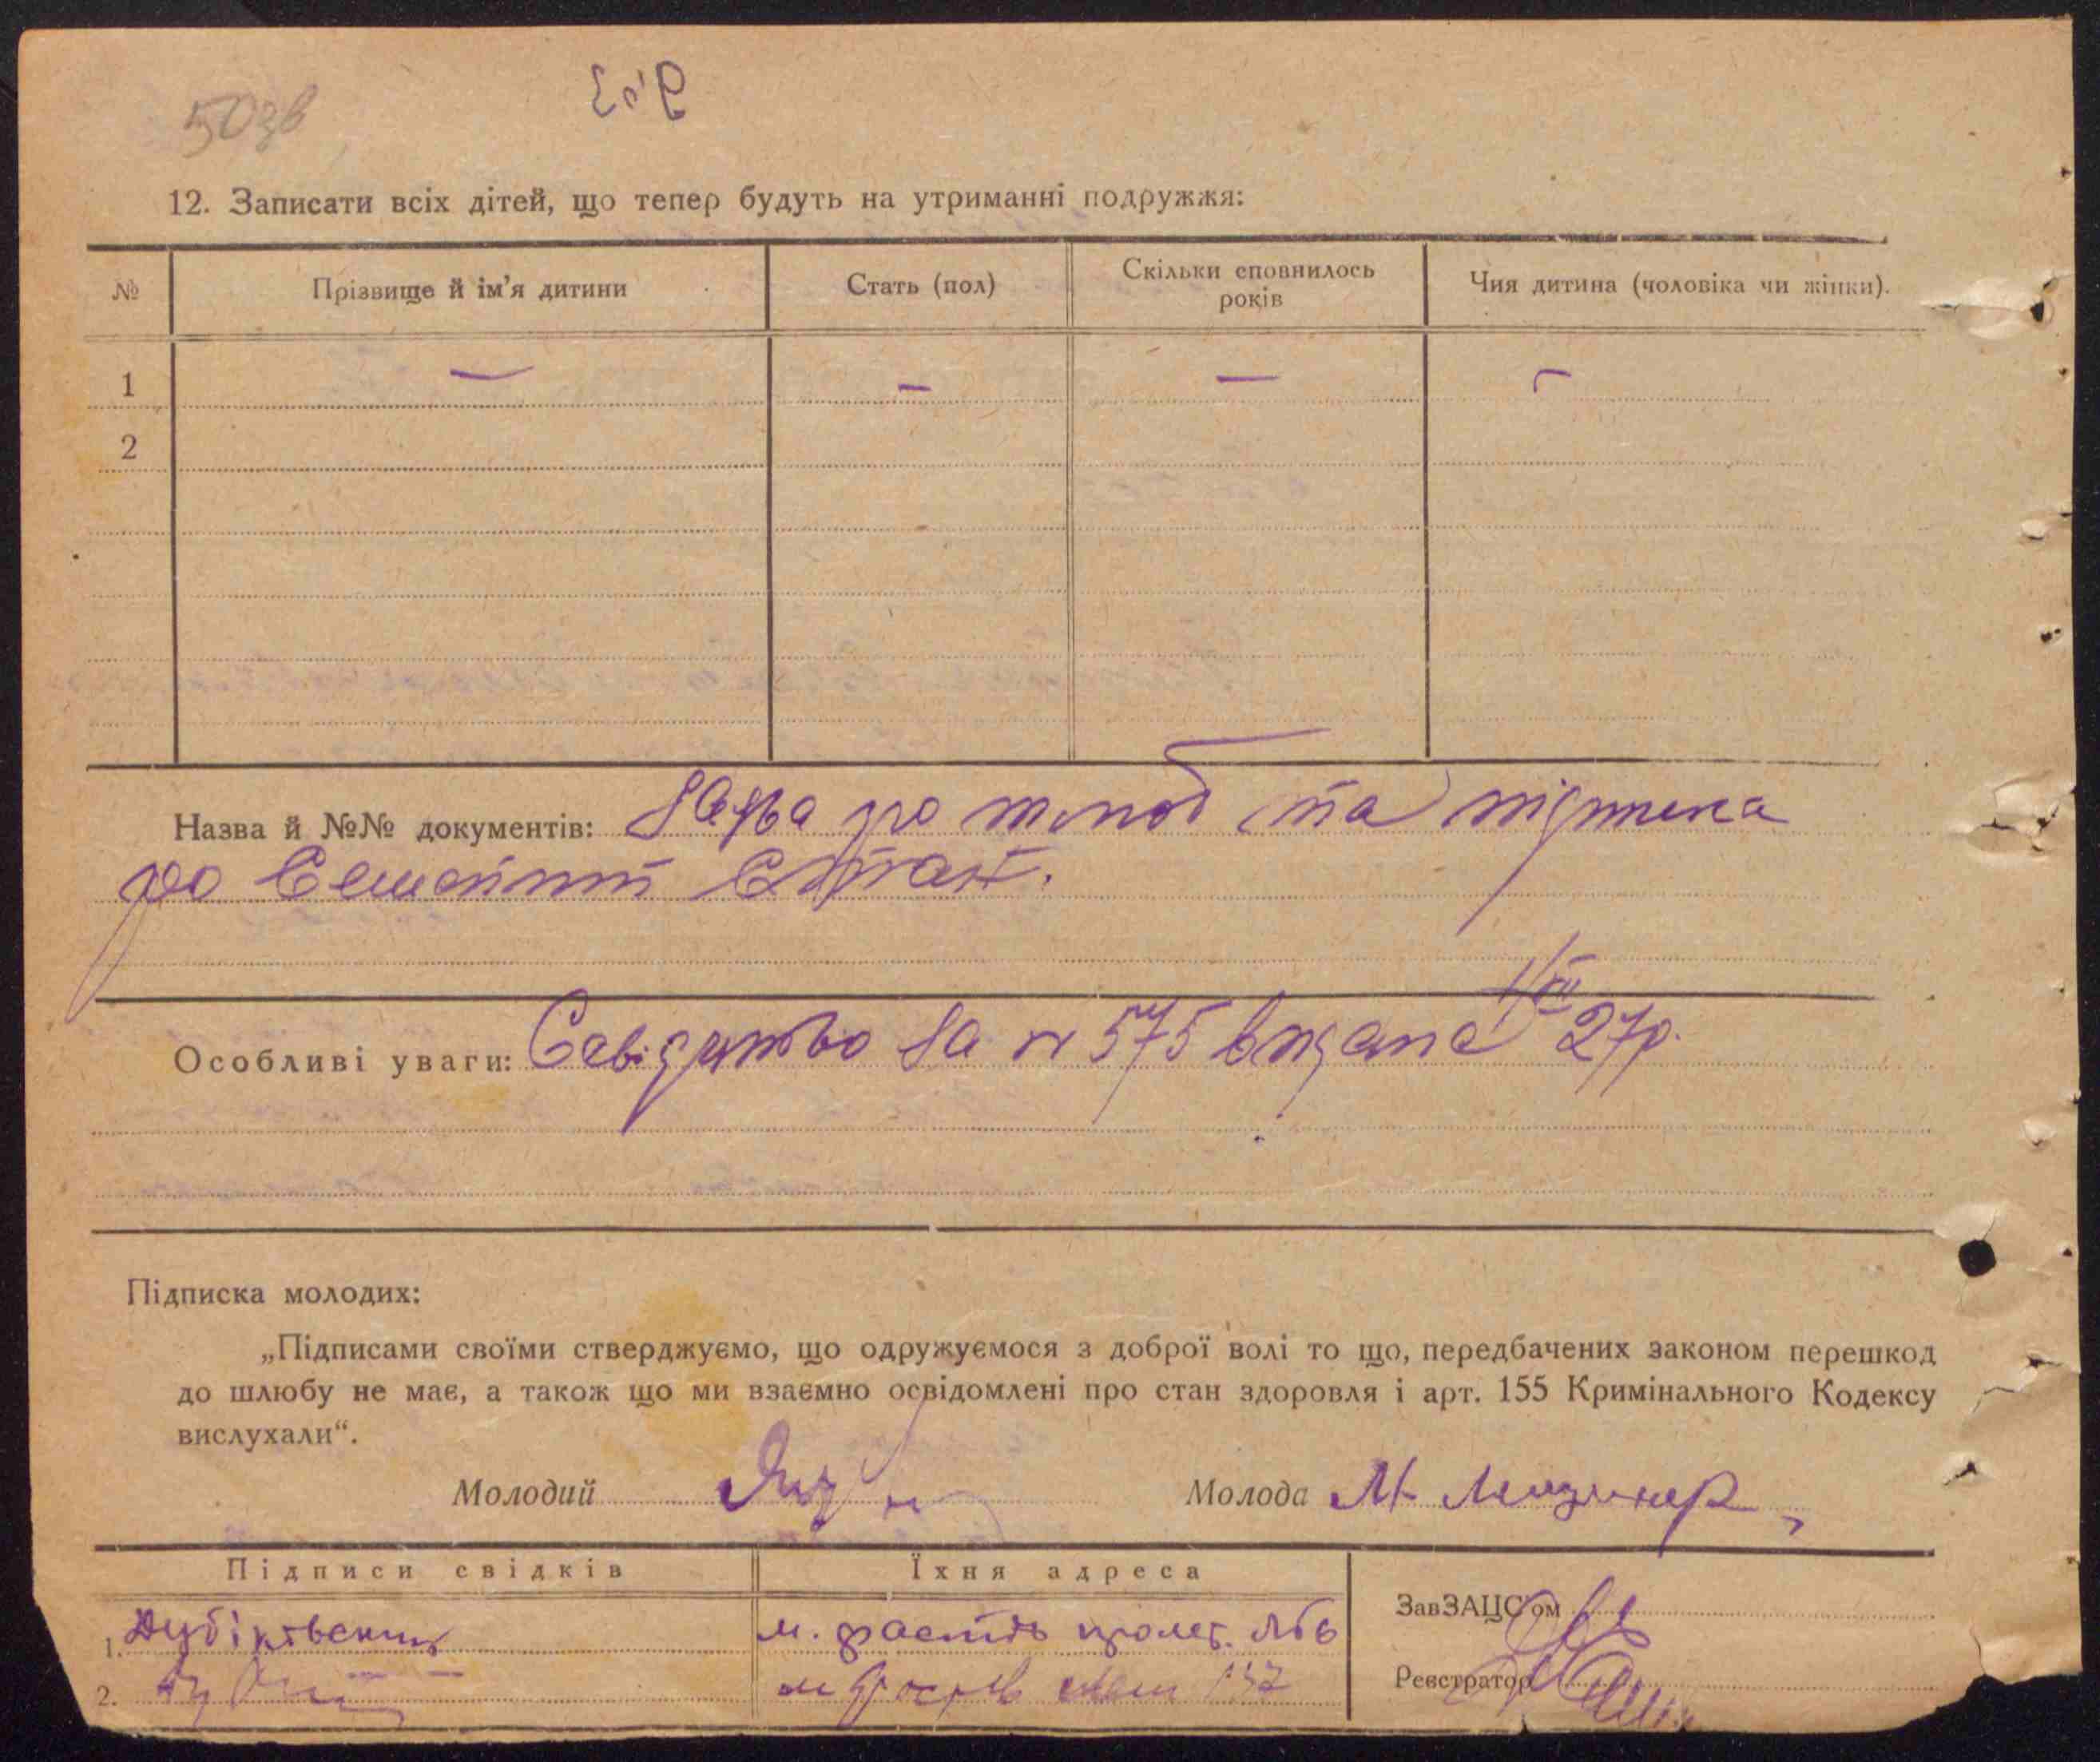 50зв
12. Записати всіх дітей, що тепер будуть на утриманні подружжя:
№ Прізвище й ім'я дитини Стать (пол) Скільки сповнилось років Чия дитина (чоловіка чи жінки).
1 — — — —
2
Назва й №№ документів: Заява про шлюб та підписка
про
Особливі уваги: Свідоцтво за № 575 видано 1/XII 27р.
Підписка молодих:
„Підписами своїми стверджуємо, що одружуємося з доброї волі то що, передбачених законом перешкод
до шлюбу не має, а також що ми взаємно освідомлені про стан здоровля і арт. 155 Кримінального Кодексу
вислухали“.
Молодий Молода М.
Підписи свідків Їхня адреса
ЗавЗАЦС'ом
1. м. Фастів пролет. №6
Реєстратор
2. м 137